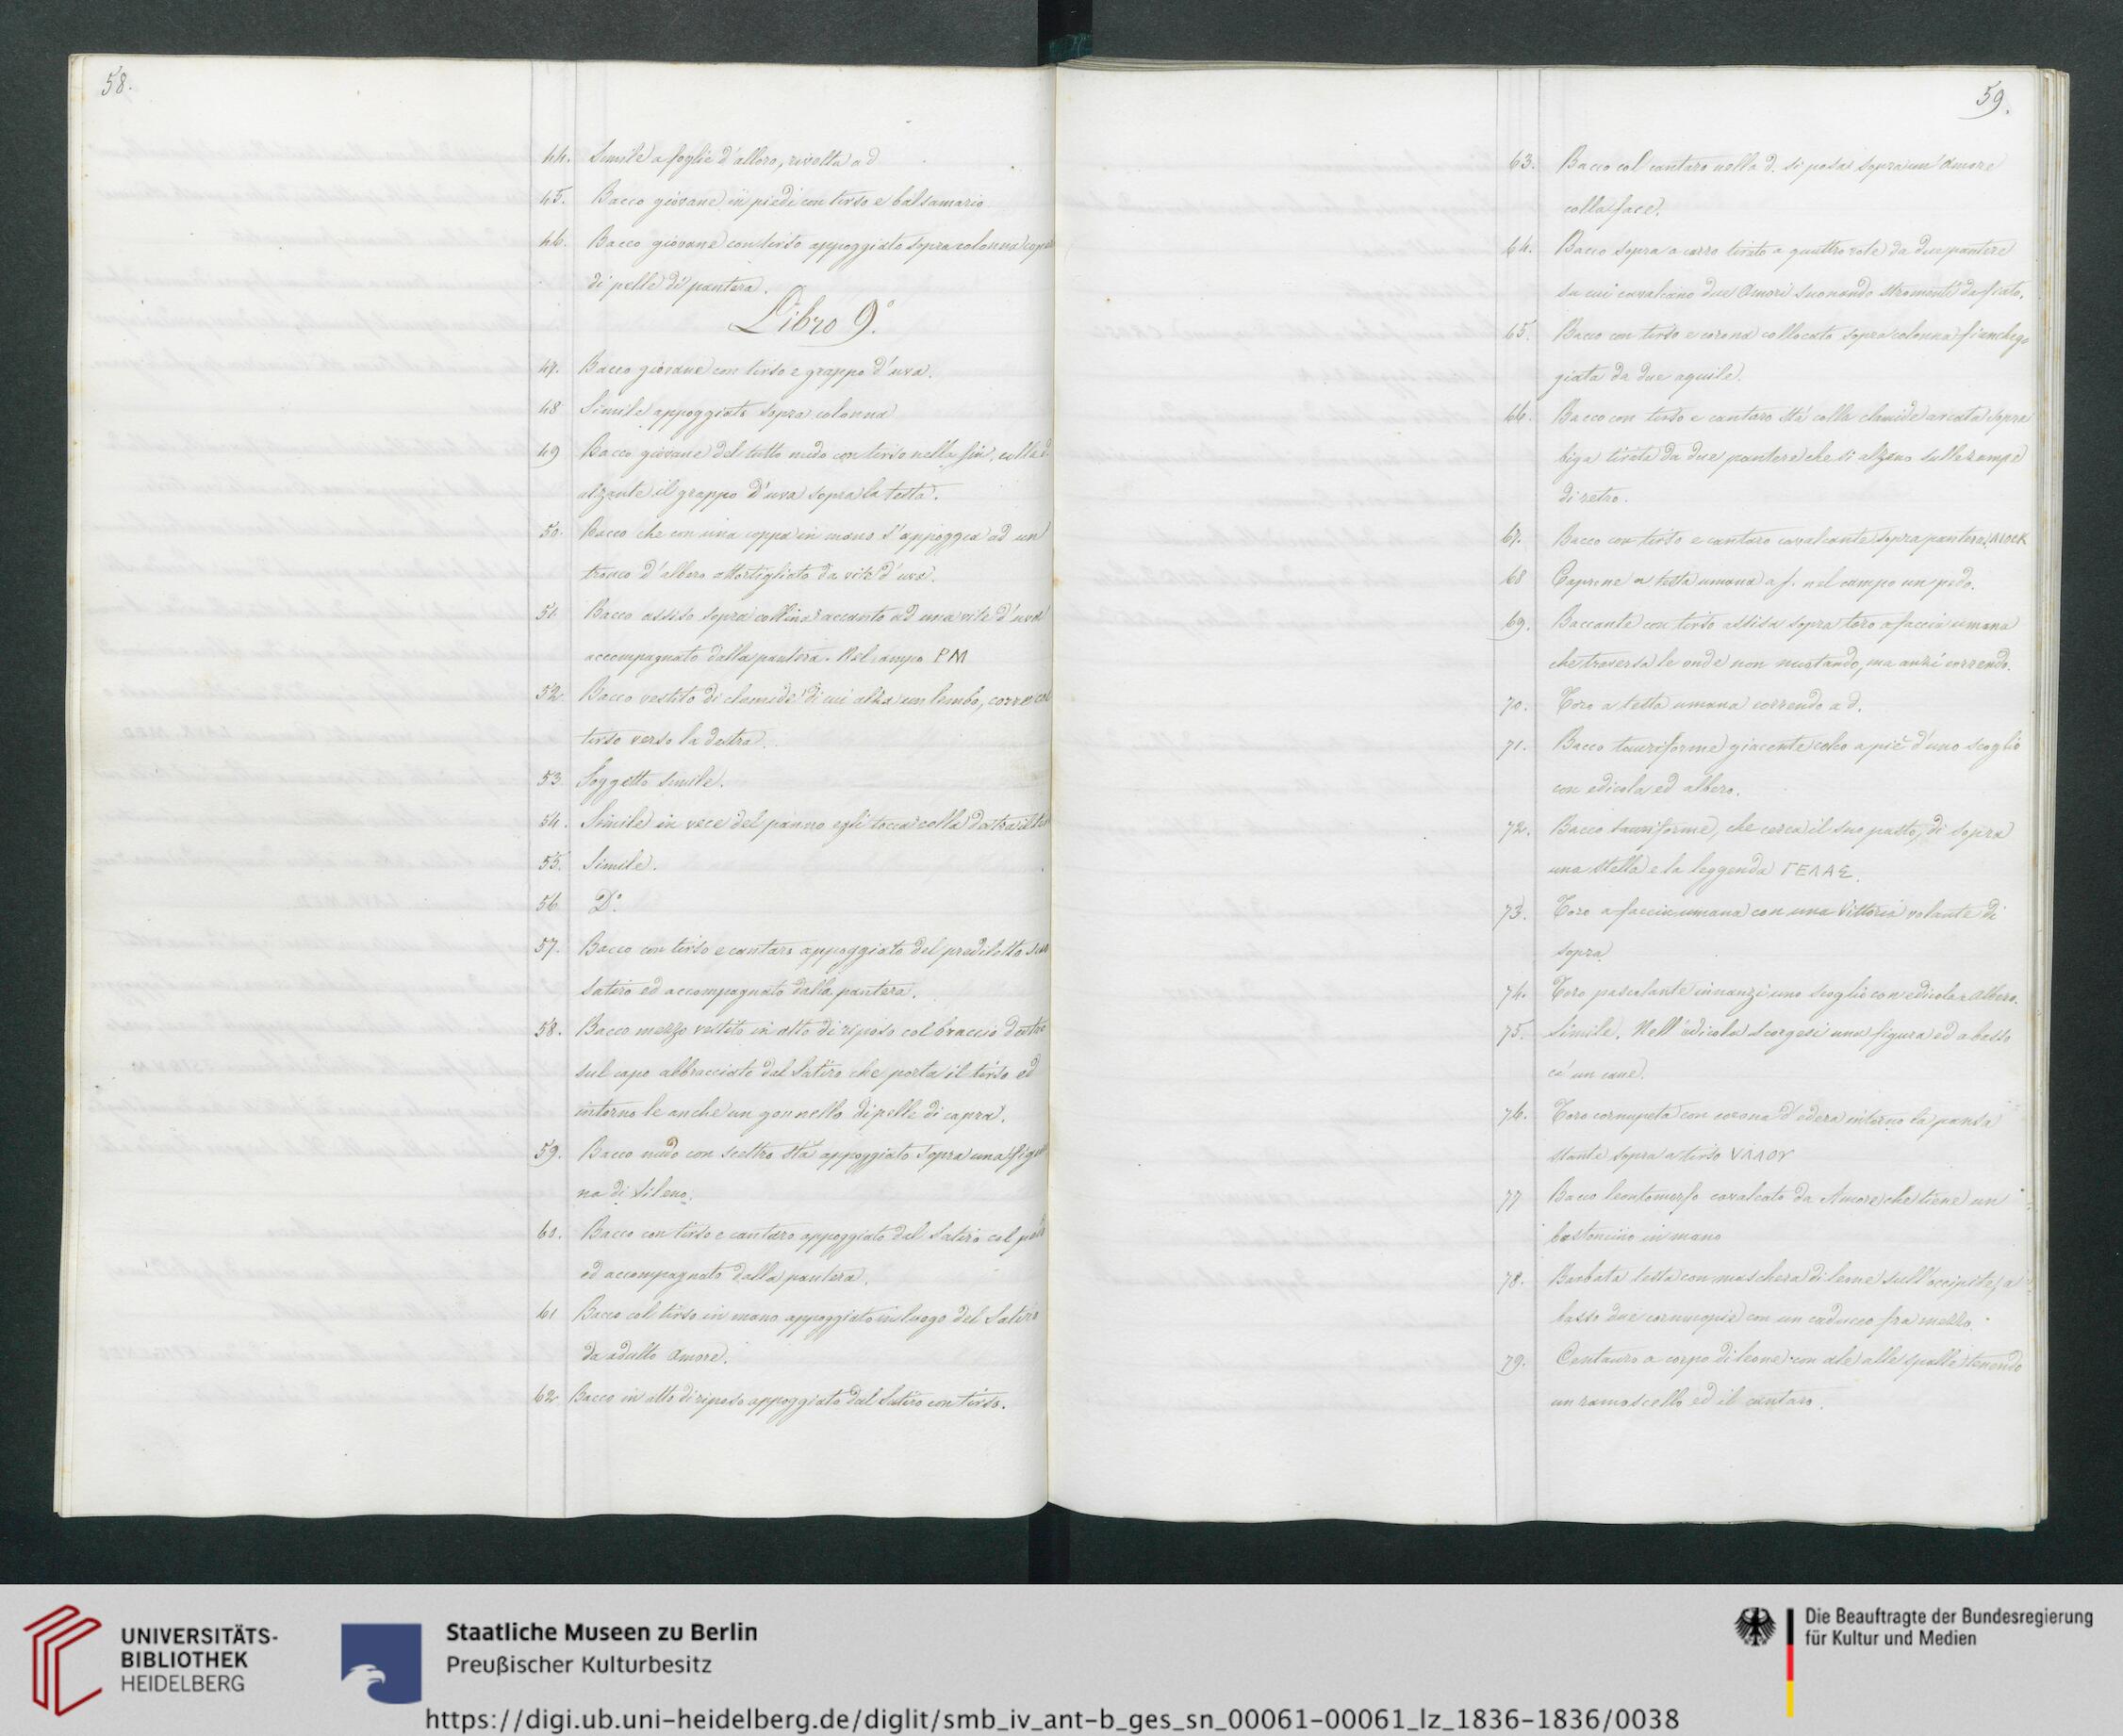 58.
44. Simile a foglie d'alloro, rivolta a d
45. Bacco giovane in piedi con tirso e balsamario
46. Bacco giovane con tirso appoggiato sopra colonna
di pelle di pantera.
Libro 9.º
47. Bacco giovane con tirso e grappo d'uva.
48 Simile appoggiato sopra colonna
49 Bacco giovane del tutto nudo con tirso nella sin. colla d
alzante il grappo d'uva sopra la testa.
50. Bacco che con una coppa in mano s'appoggia ad un
tronco d'albero attortigliato da vite d'uva.
51 Bacco assiso sopra collina accanto ad una vite d'uva
accompagnato dalla pantera. Nel campo PM
52. Bacco vestito di clamide di cui alza un lembo, corre col
tirso verso la destra.
53 Soggetto simile.
54. Simile in vece del panno egli tocca colla destra il
55. Simile.
56 Dº.
57. Bacco con tirso e cantaro appoggiato del prediletto suo
Satiro ed accompagnato dalla pantera.
58. Bacco mezzo vestito in atto di riposo col braccio destro
sul capo abbracciato dal Satiro che porta il tirso ed
intorno le anche un gonnello di pelle di capra.
59. Bacco nudo con scettro stà appoggiato sopra una figu
na di Sileno.
60. Bacco con tirso e cantaro appoggiato dal Satiro col
ed accompagnato dalla pantera.
61 Bacco col tirso in mano appoggiato in luogo del Satiro
da adulto Amore.
62 Bacco in atto di riposo appoggiato dal Satiro con tirso.
59.
63. Bacco col cantaro nella d. si posa sopra un Amore
colla face.
64. Bacco sopra a carro tirato a quattro rote da due pantere
su cui cavalcano due Amori suonando stromenti da fiato.
65. Bacco con tirso e corona collocato sopra colonna fiancheg
giata da due aquile.
66. Bacco con tirso e cantaro stà colla clamide arcata sopra
biga tirata da due pantere che si alzano sulle zampe
di retro.
67. Bacco con tirso e cantaro cavalcante sopra pantera
68 Caprone a testa umana a s. nel campo un pedo.
69. Baccante con tirso assisa sopra toro a faccia umana
che traversa le onde non nuotando, ma anzi correndo.
70. Toro a testa umana correndo a d.
71. Bacco tauriforme giacente a piè d'uno scoglio
con edicola ed albero.
72. Bacco tauriforme, che cerca il suo pasto, di sopra
una stella e la leggenda ΓΕΛΑΣ.
73. Toro a faccia umana con una Vittoria volante di
sopra
74. Toro pascolante innanzi uno scoglio con edicola e albero.
75. Simile. Nell'edicola scorgesi una figura ed a basso
c'è un cane.
76. Toro cornupeta con corona d'edera intorno la pansa
stante sopra a tirso
77 Bacco leontomorfo cavalcato da Amore che tiene un
bastoncino in mano
78. Barbata testa con maschera di leone sull'occipite, a
basso due cornucopie con un caduceo fra mezzo.
79. Centauro a corpo di leone con ale alle spalle tenendo
un ramoscello ed il cantaro.
UNIVERSITÄTS-
BIBLIOTHEK
HEIDELBERG
Staatliche Museen zu Berlin
Preußischer Kulturbesitz
Die Beauftragte der Bundesregierung
für Kultur und Medien
https://digi.ub.uni-heidelberg.de/diglit/smb_iv_ant-b_ges_sn_00061-00061_lz_1836-1836/0038